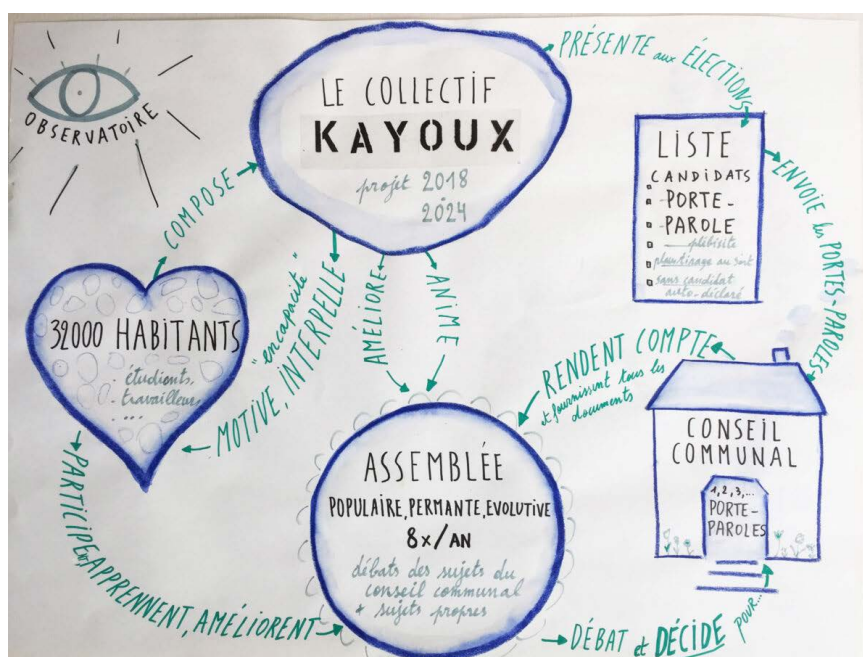 OBSERVATOIRE
LE COLLECTIF
KAYOUX
projet 2018
2024
PRÉSENTE aux ÉLECTIONS
LISTE
CANDIDATS
PORTE-
PAROLE
plébisite
plus tirage au sort
sans candidat
auto-déclaré
ENVOIE les PORTES-PAROLES
COMPOSE
32000 HABITANTS
. étudients,
. travailleurs,
. ...
"encapacité"
MOTIVE, INTERPELLE
AMÉLIORE
ANIME
RENDENT COMPTE
et fournissent tous les
documents
CONSEIL
COMMUNAL
1, 2, 3, ...
PORTE-
PAROLES
ASSEMBLÉE
POPULAIRE, PERMANTE, EVOLUTIVE
8x/AN
débats des sujets du
conseil communal
+ sujets propres
PARTICIPE, APPRENNENT, AMÉLIORENT
DÉBAT et DÉCIDE POUR...